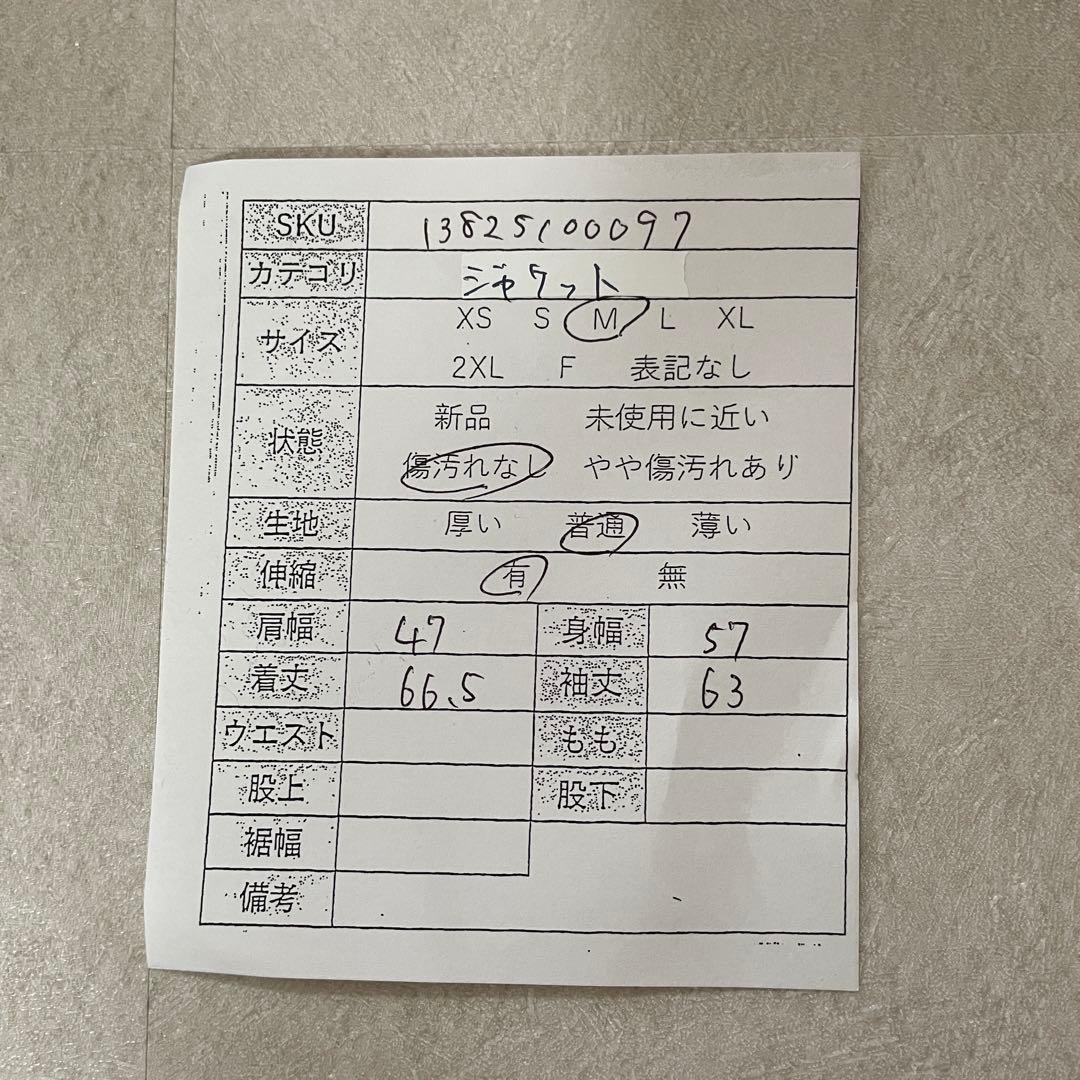 SKU 13825100097
カテゴリ ジャケット
サイズ XS S M L XL
2XL F 表記なし
状態 新品 未使用に近い
傷汚れなし やや傷汚れあり
生地 厚い 普通 薄い
伸縮 有 無
肩幅 47 身幅 57
着丈 66.5 袖丈 63
ウエスト もも
股上 股下
裾幅
備考